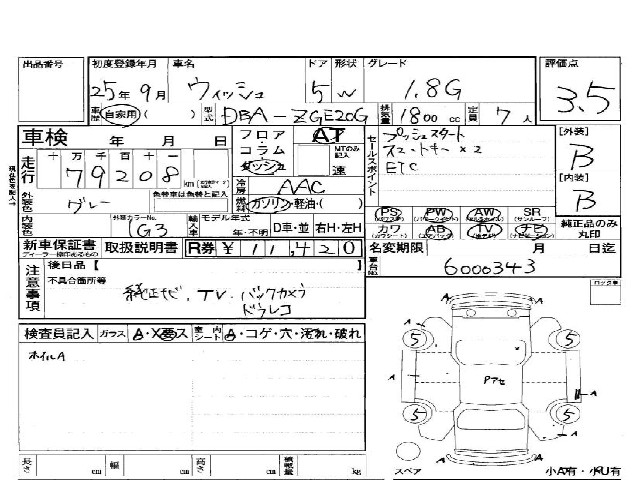 出品番号 初度登録年月 車名 ドア 形状 グレード 評価点
25年 9月 ウィッシュ 5 W 1.8G 3.5
車歴 自家用 ( ) 型式 DBA-ZGE20G 排気量 1800 cc 定員 7人
車検 年 月 日 フロア AT セールスポイント プッシュスタート [外装]
コラム MTのみ記入 スマートキー×2 B
走行 十万千百十一 79208 km ダッシュ 速 ETC [内装]
冷房 AAC B
外装色 グレー 色替車は色替と記入 燃料 ガソリン・軽油・( ) PS PW AW SR
内装色 外装カラーNo. 1G3 輸入車 モデル年式 年・不明 D車・並 右H・左H カワ AB TV ナビ 純正品のみ丸印
新車保証書 取扱説明書 R券 ¥11,420 名変期限 月 日迄
注意事項 後日品【 車台No. 6000343
不具合箇所等
純正ナビ、TV、バックカメラ
ドラレコ
検査員記入 ガラス A・X要ス 室内シート A・コゲ・穴・汚れ・破れ
ホイルA
A A
5 5
A Pアセ A
5 5
A A
長さ cm 幅 cm 高さ cm 積載量 kg スペア 小A有・小U有